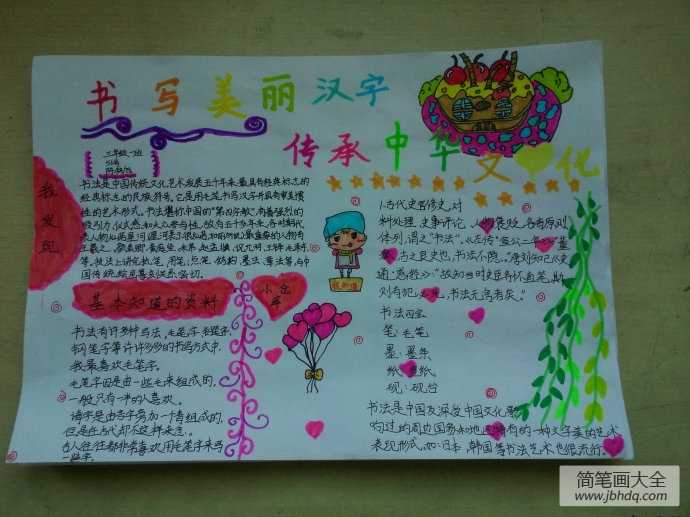 书写美丽汉字
传承中华文化
三年级一班
51号
我发现
书法是中国传统文化艺术发展五千年来最具有经典标志的
经典标志的民族符号。它是用毛笔书写汉字并具有审美惯
性的艺术形式。书法堪称中国的"第四宗教",有着强烈的
吸引力、仪式感和大众参与性。故有五千多年来,各时期代
国传统 息息相关关系密切。
基本知道的资料
小仓库
书法有许多种写法,毛笔字、铅笔字、
钢笔字等许许多多的书写方式中,
我最喜欢毛笔字。
毛笔字因是由一些毛来组成的,
一般只有一半的人喜欢。
诗字是由言字旁加一个 组成的,
但是在古代却不这样来念。
古人往往都非常喜欢用毛笔字来写
一些字。
我知道
1.古代史官修史,对
料处理、史事评论、人物褒贬,各有原则
体例,谓之"书法"。《左传·宣公二年》:"董
古之良史也,书法不隐。"唐刘知己《史
通·惑经》:"故知当时史臣各怀直笔,斯
则有犯必死,书法无舍者矣。"
书法四宝
笔:毛笔
墨:墨条
纸:宣纸
砚:砚台
书法是中国及深受中国文化影
响过的周边国家和地区特有的一种文字美的艺术
表现形式。如:日本、韩国等书法艺术也很流行。
简笔画大全
www.jbhdq.com